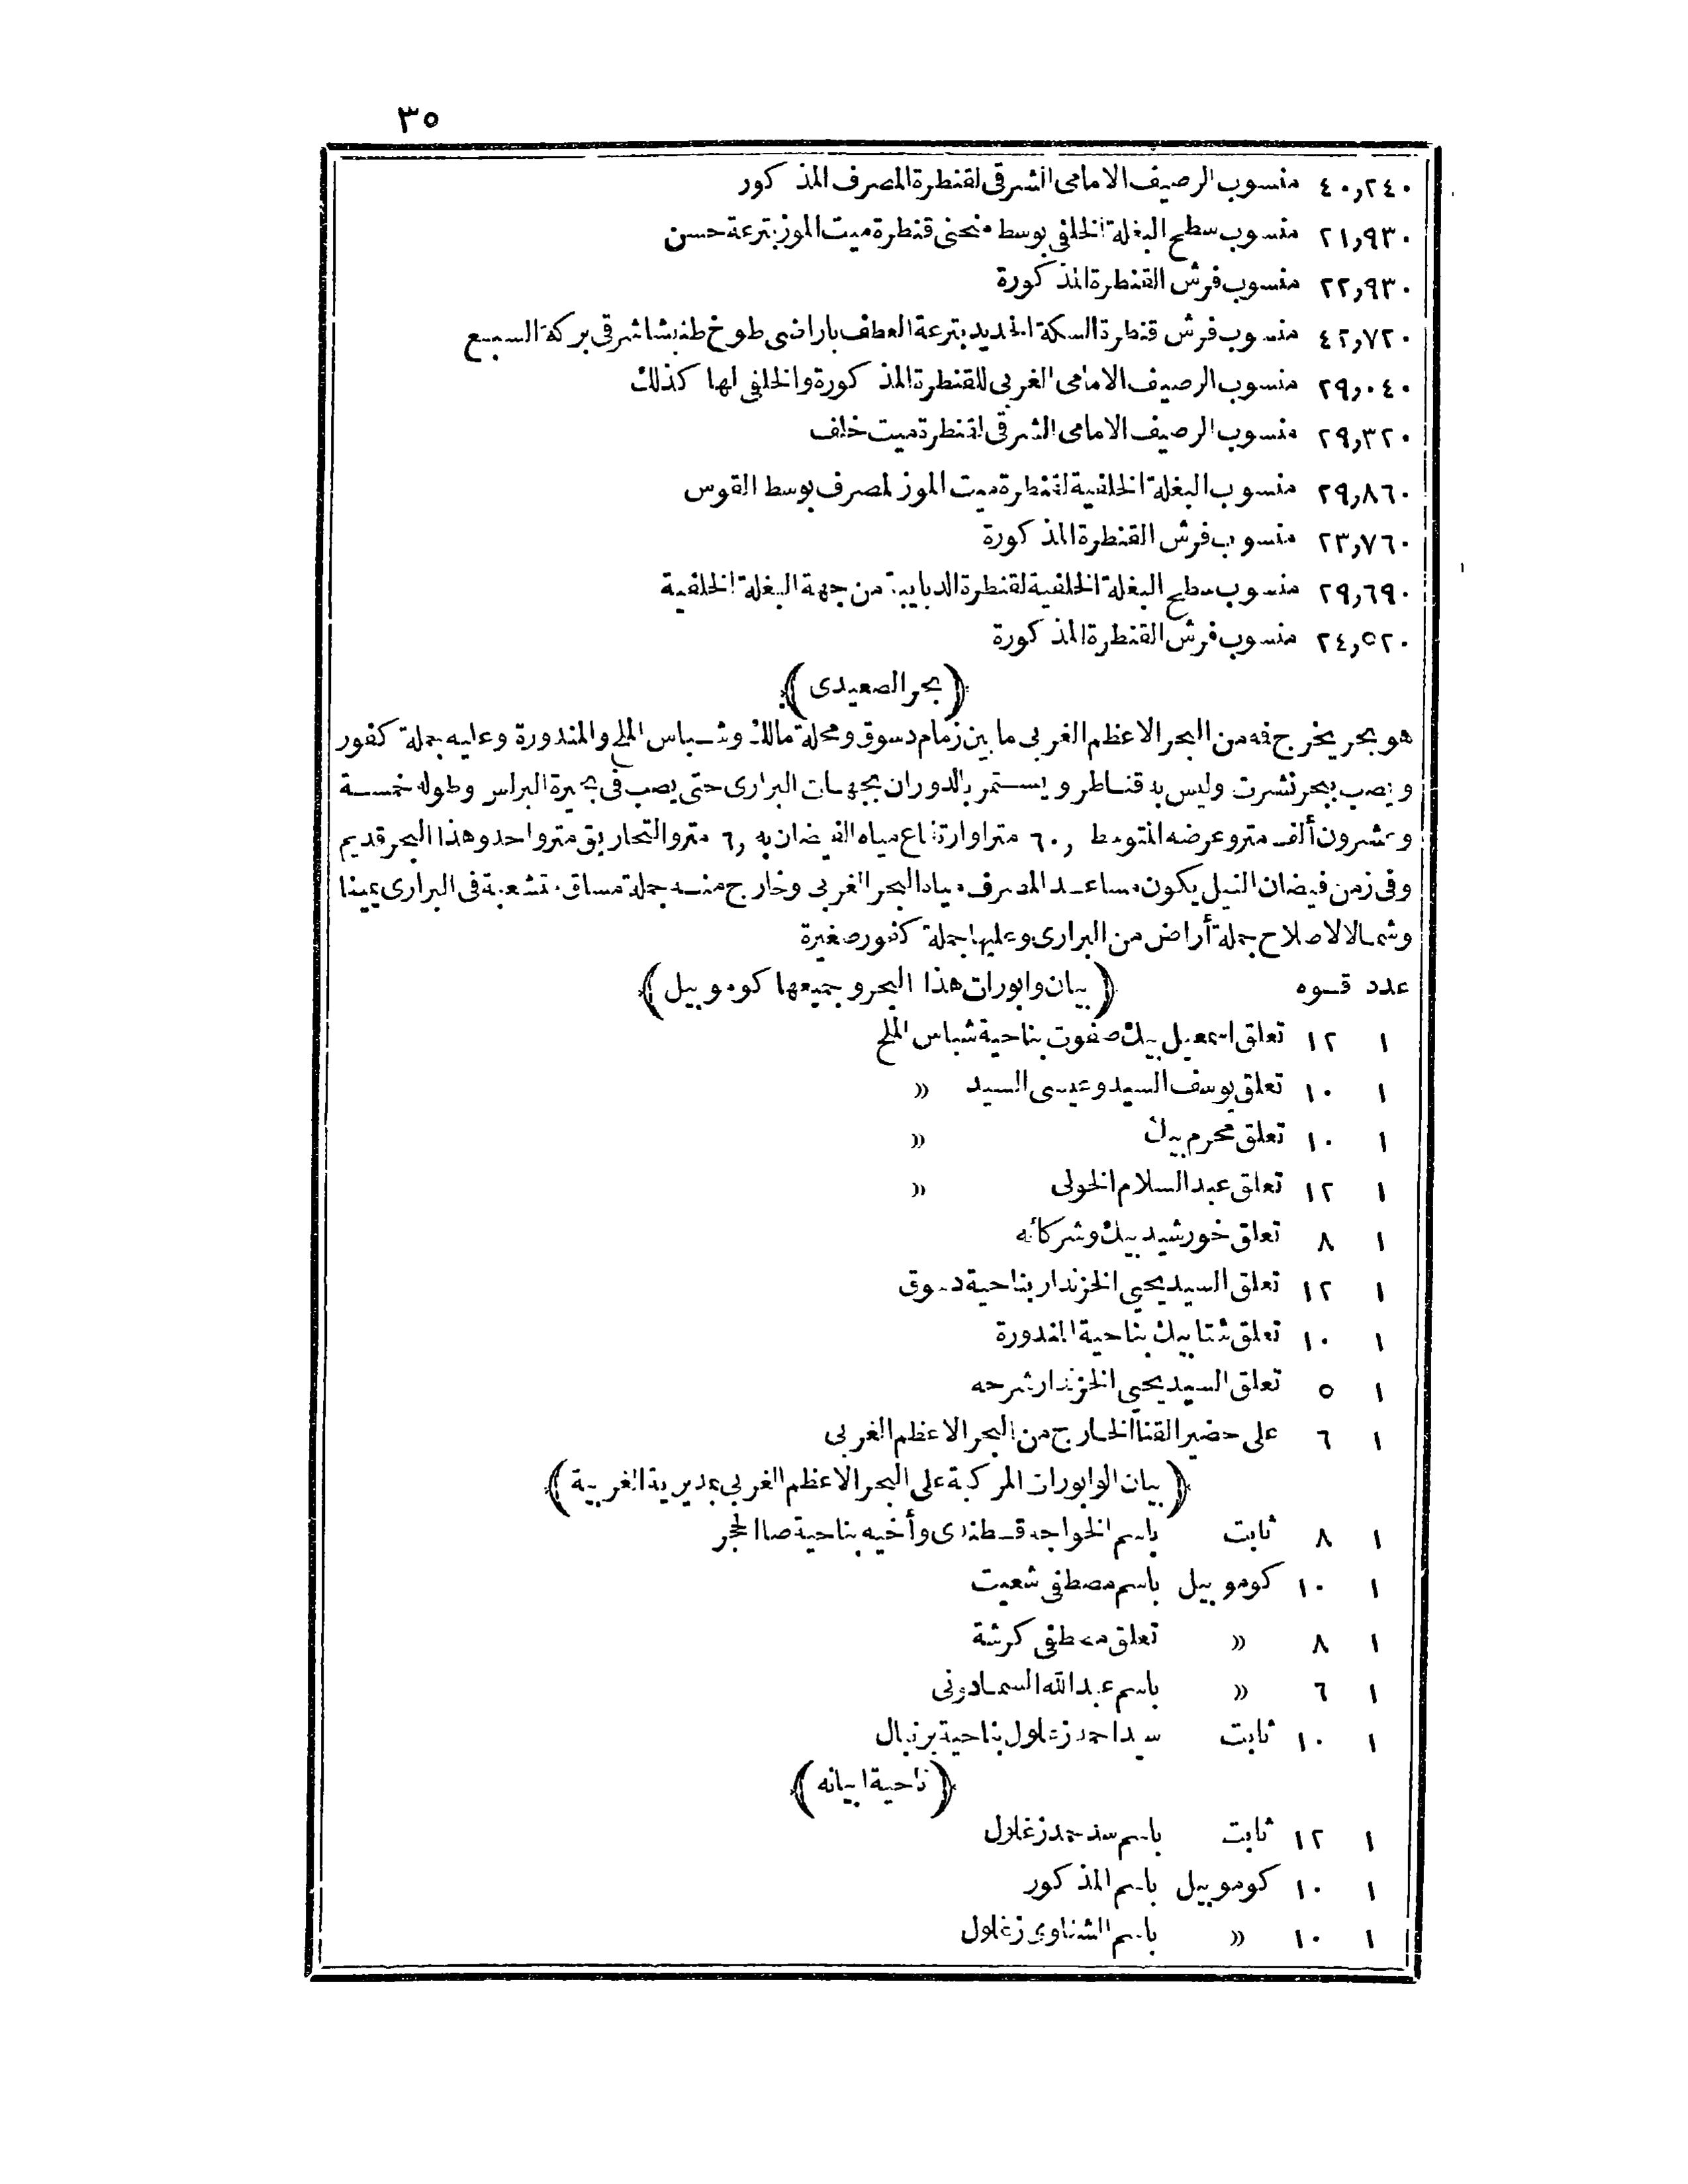 ٣٥
٤٠,٢٤٠ منسوب الرصيف الامامى الشرقى لقنطرة المصرف المذكور
٢١,٩٣٠ منسوب سطح البغلة الخلفى بوسط منحنى قنطرة ميت الموز بترعة حسن
٢٢,٩٣٠ منسوب فرش القنطرة المذكورة
٤٢,٧٢٠ منسوب فرش قنطرة السكة الحديد بترعة العطف باراضى طوخ طنبشا شرقى بركة السبع
٢٩,٠٤٠ منسوب الرصيف الامامى الغربى للقنطرة المذكورة والخلفى لها كذلك
٢٩,٣٢٠ منسوب الرصيف الامامى الشرقى لقنطرة ميت خلف
٢٩,٨٦٠ منسوب البغلة الخلفية لقنطرة ميت الموز لمصرف بوسط القوس
٢٣,٧٦٠ منسوب فرش القنطرة المذكورة
٢٩,٦٩٠ منسوب سطح البغلة الخلفية لقنطرة الدبايبة من جهة البغلة الخلفية
٢٤,٥٢٠ منسوب فرش القنطرة المذكورة
(بحر الصعيدى)
هو بحر يخرج فه من البحر الاعظم الغربى ما بين زمام دسوق ومحلة مالك وشباس الملح والمندورة وعليه جملة كفور
ويصب ببحر نشرت وليس به قناطر ويستمر بالدوران بجهات البرارى حتى يصب فى بحيرة البرلس وطوله خمسة
وعشرون ألف متر وعرضه المتوسط ٦٠, مترا وارتفاع مياه الفيضان به ٦, متر والتحاريق متر واحد وهذا البحر قديم
وفى زمن فيضان النيل يكون مساعد المصرف مياه البحر الغربى وخارج منه جملة مساق متشعبة فى البرارى يمينا
وشمالا لاصلاح جملة أراض من البرارى وعليها جملة كفور صغيرة
عدد قوه (بيان وابورات هذا البحر وجميعها كوموبيل)
١ ١٢ تعلق اسمعيل بيك صفوت بناحية شباس الملح
١ ١٠ تعلق يوسف السيد وعيسى السيد »
١ ١٠ تعلق محرم بيك »
١ ١٢ تعلق عبد السلام الخولى »
١ ٨ تعلق خورشيد بيك وشركائه
١ ١٢ تعلق السيد يحيى الخزندار بناحية دسوق
١ ١٠ تعلق شتا بيك بناحية المندورة
١ ٥ تعلق السيد يحيى الخزندار شرحه
١ ٦ على حضير القنا الخارج من البحر الاعظم الغربى
(بيان الوابورات المركبة على البحر الاعظم الغربى بمديرية الغربية)
١ ٨ ثابت باسم الخواجه قسطندى وأخيه بناحية صا الحجر
١ ١٠ كوموبيل باسم مصطفى شعيت
١ ٨ » تعلق مصطفى كرشة
١ ٦ » باسم عبد الله السمادونى
١ ١٠ ثابت سيد احمد زغلول بناحية برنبال
(ناحية ابيانه)
١ ١٢ ثابت باسم زغلول
١ ١٠ كوموبيل باسم المذكور
١ ١٠ » باسم الشناوى زغلول